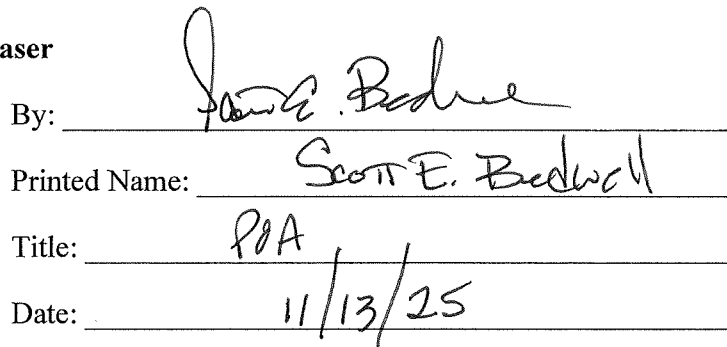 aser
By: Scott E. Bedwell
Printed Name: Scott E. Bedwell
Title: POA
Date: 11/13/25